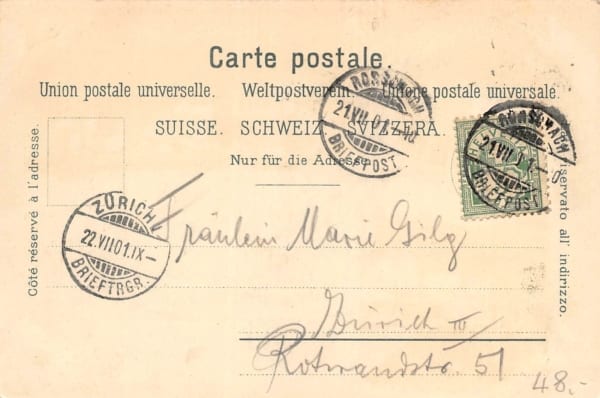 Carte postale.
Union postale universelle. Weltpostverein. Unione postale universale.
SUISSE. SCHWEIZ. SVIZZERA.
Nur für die Adresse.
Côté réservé à l'adresse.
RORSCHACH
21.VII.01.
BRIEFPOST
RORSCHACH
21.VII.01.
BRIEFPOST
servato all' indirizzo.
ZÜRICH
22.VII.01.IX–
BRIEFTRGR.
Fräulein Marie Gilg
Zürich III
Rotwandstr. 51
48.-